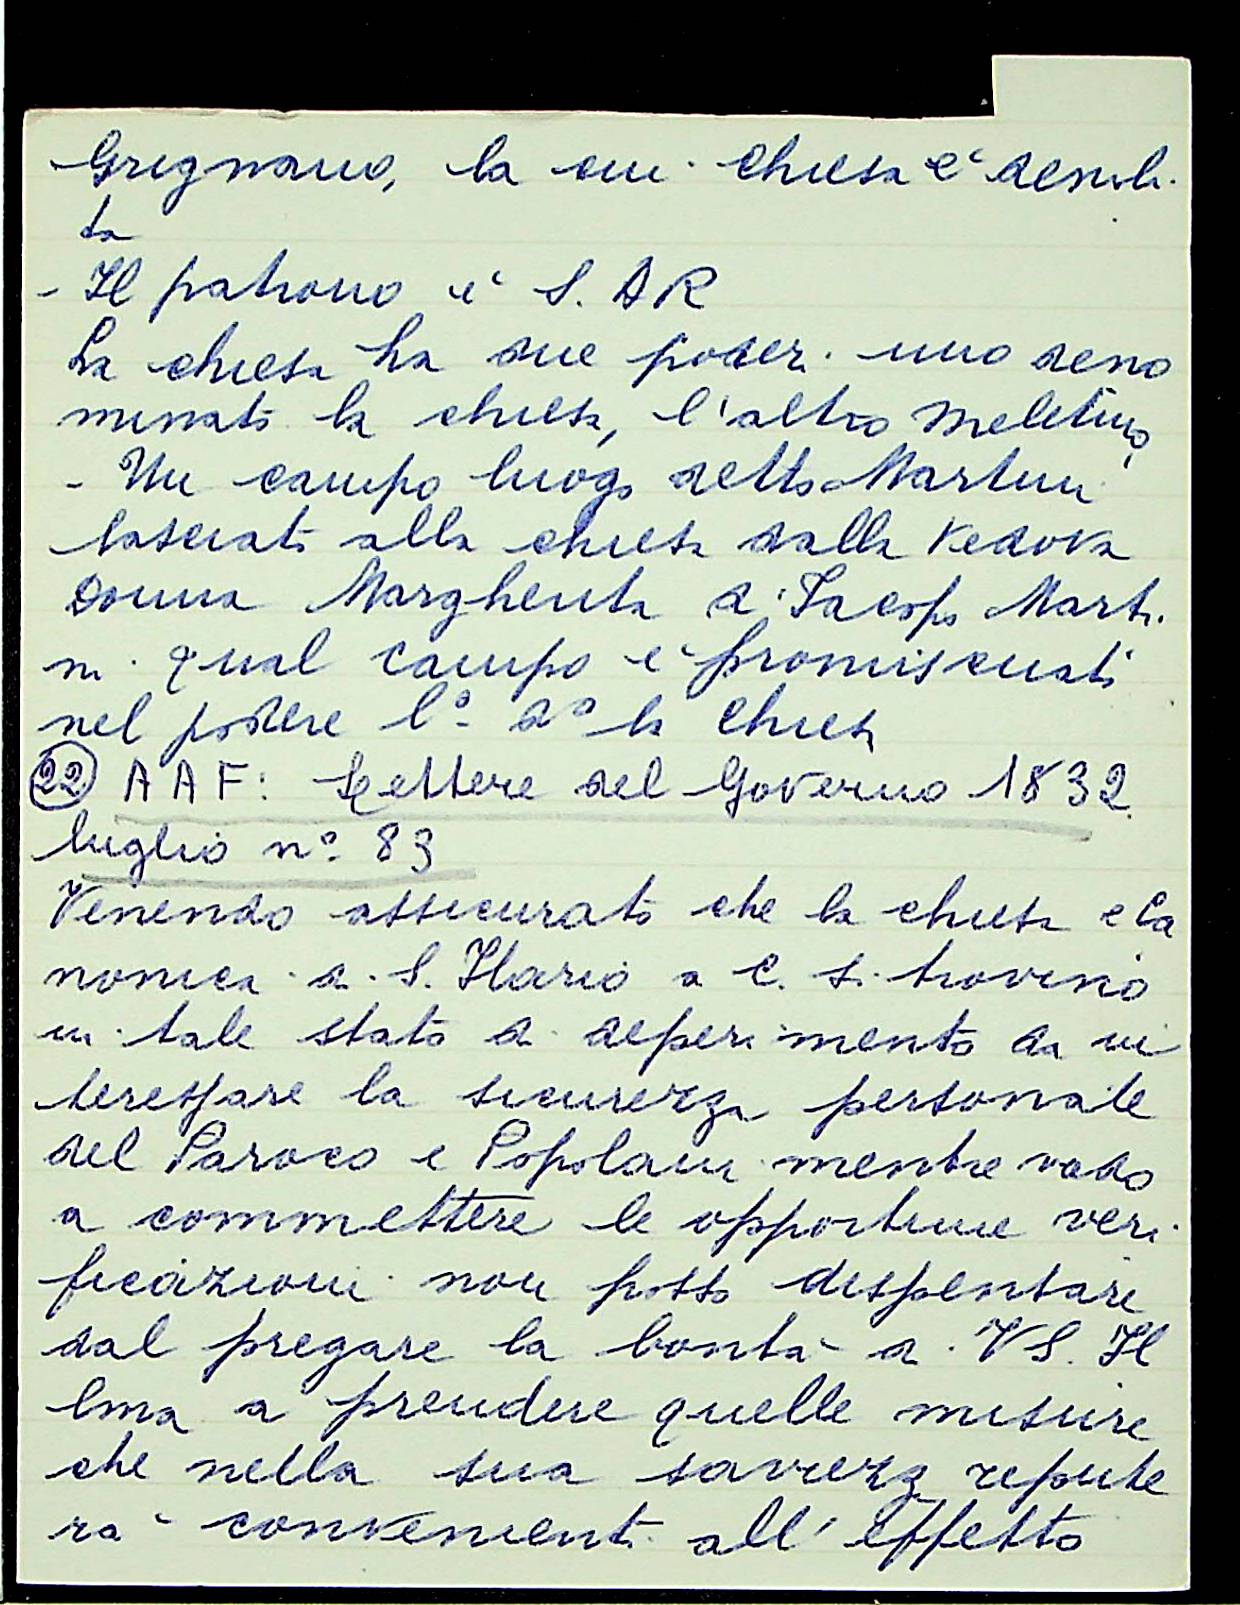 Grignano, la cui chiesa è demoli
ta
- Il patrono è S. A R
La chiesa ha due poderi uno deno
minato la chiesa, l'altro Meletino
- Un campo luogo detto Martini
lasciato alla chiesa dalla Vedova
Donna Margherita di Jacopo Marti
ni qual campo è promiscuato
nel podere l° d° la Chiesa
(22) A A F: Lettere del Governo 1832
luglio n° 83
Venendo assicurato che la chiesa e Ca
nonica di S. Ilario a C. si trovino
in tale stato di deperimento da in
teressare la sicurezza personale
del Paroco e Popolani mentre vado
a commettere le opportune veri
ficazioni non posso dispentare
dal pregare la bontà di VS. Il
lma a prendere quelle misure
che nella sua saviezza repute
rà convenienti all'effetto